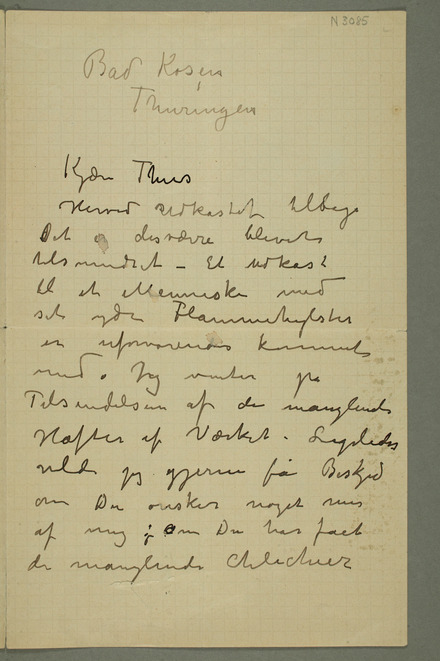 N 3085
Bad Kosen
Thuringen
Kjære Thiis
Herved Udkastet tilbage
Det er desværre blevet
tilsmudset – Et Udkast
til et Menneske med
sit ydre Flammehylster
er uforvarende kommet
med. Jeg venter på
Tilsendelsen af de manglende
Hæfter af Værket. Ligeledes
vilde jeg gjerne få Beskjed
om Du ønsker noget mer
af mig; om Du har fået
de manglende Chlicheer